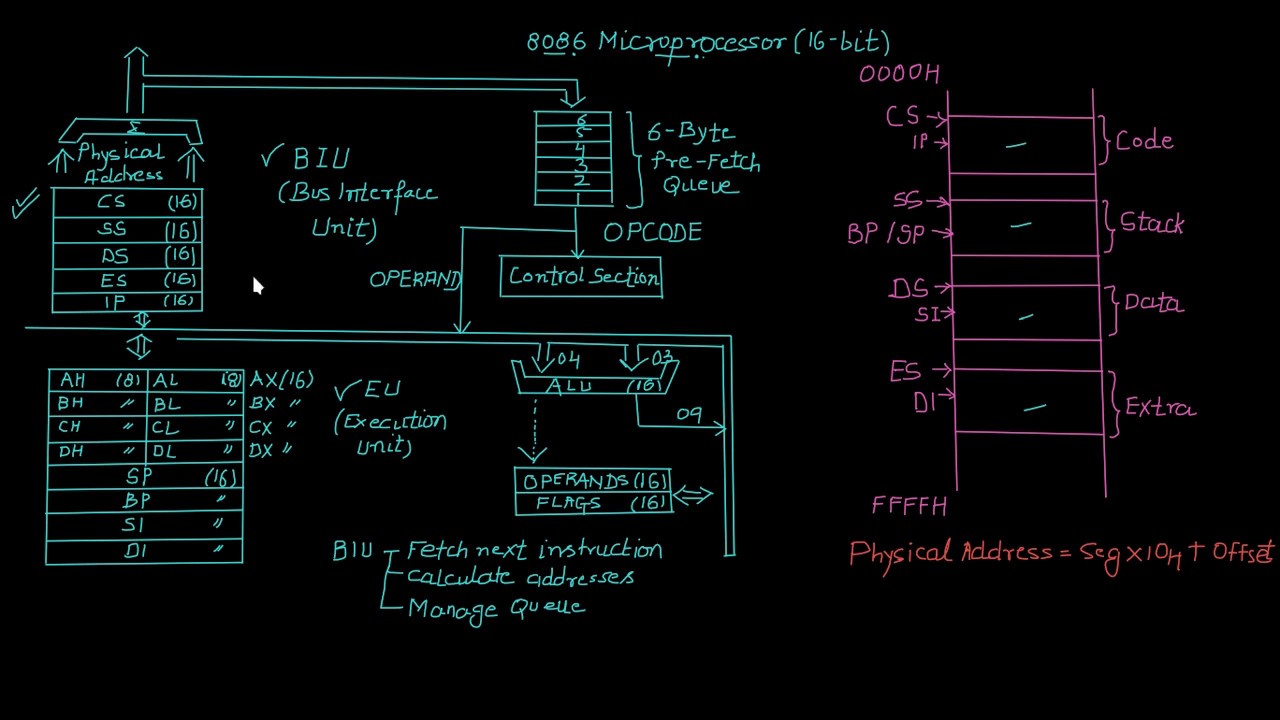 8086 Microprocessor (16-bit)
Σ
Physical
Address
CS (16)
SS (16)
DS (16)
ES (16)
IP (16)
✓ BIU
(Bus Interface
Unit)
6
5
4
3
2
1
6-Byte
Pre-Fetch
Queue
OPCODE
OPERAND
Control Section
AH (8) AL (8) AX(16)
BH " BL " BX "
CH " CL " CX "
DH " DL " DX "
SP (16)
BP "
SI "
DI "
✓ EU
(Execution
Unit)
04
03
ALU (16)
09
OPERANDS (16)
FLAGS (16)
BIU Fetch next instruction
Calculate addresses
Manage Queue
0000H
CS
IP
Code
SS
BP / SP
Stack
DS
SI
Data
ES
DI
Extra
FFFFH
Physical Address = Seg × 10H + Offset